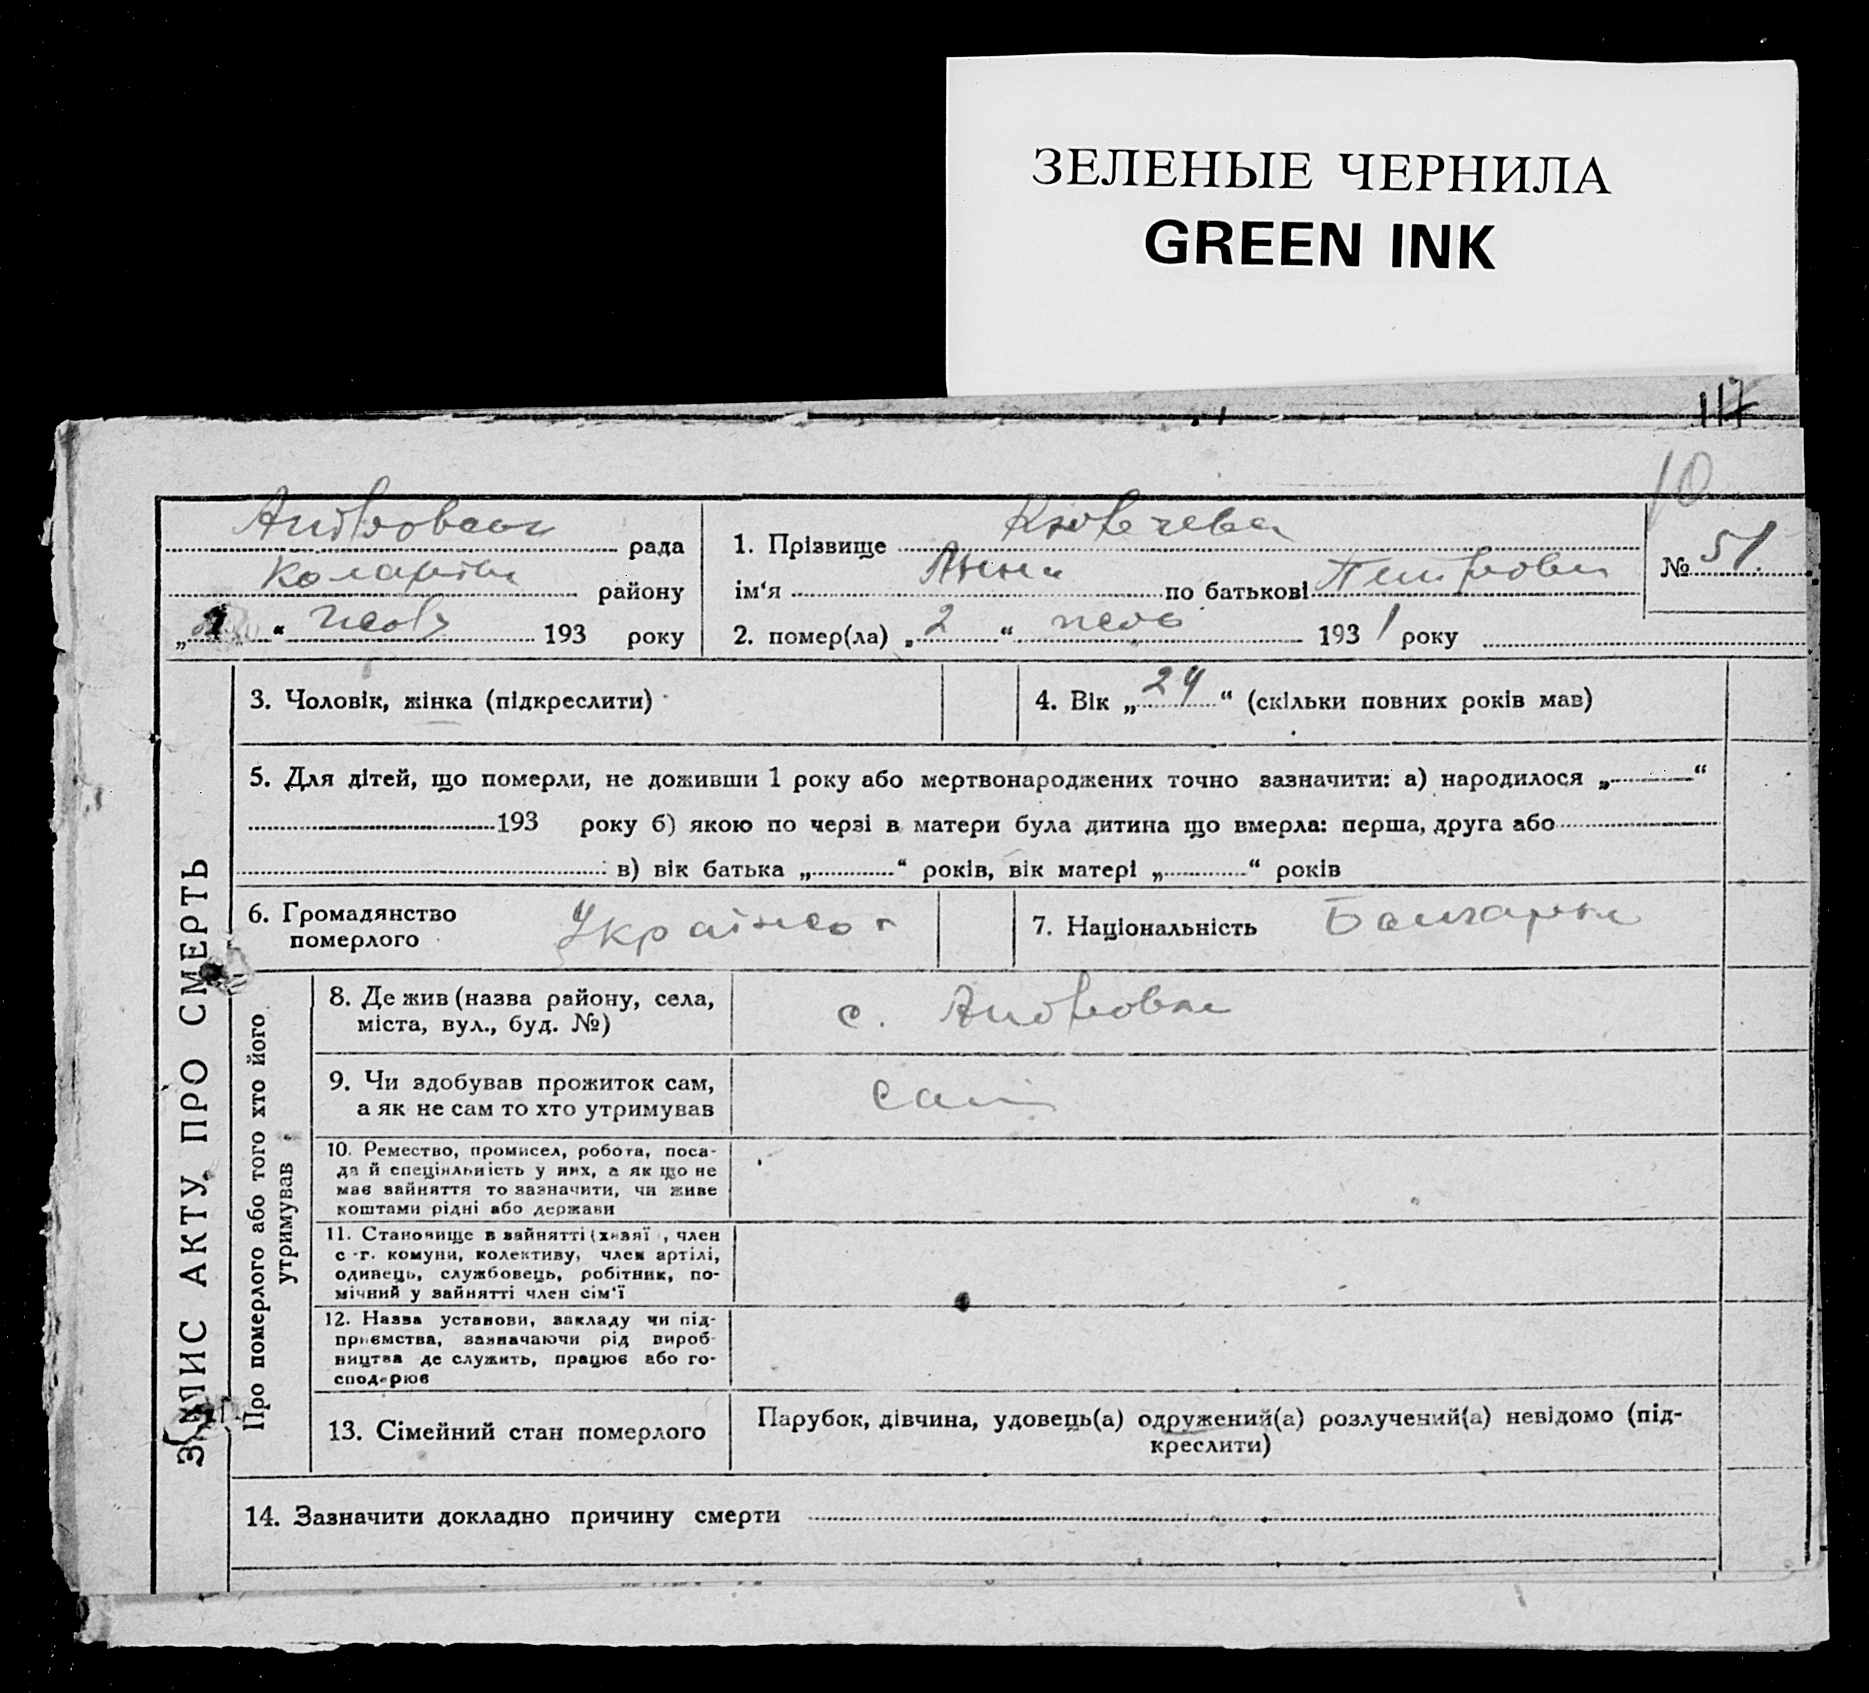 ЗЕЛЕНЫЕ ЧЕРНИЛА
GREEN INK
117
10
рада
району
" " 193 року
1. Прізвище
ім'я Анна по батькові
2. помер(ла) „ 2 " 193 1 року
№ 51.
ЗАПИС АКТУ ПРО СМЕРТЬ
3. Чоловік, жінка (підкреслити)
4. Вік „ 24 “ (скільки повних років мав)
5. Для дітей, що померли, не доживши 1 року або мертвонароджених точно зазначити: а) народилося „ “
193 року б) якою по черзі в матери була дитина що вмерла: перша, друга або
в) вік батька „ “ років, вік матері „ “ років
6. Громадянство
померлого
7. Національність
Про померлого або того хто його
утримував
8. Де жив (назва району, села,
міста, вул., буд. №)
с.
9. Чи здобував прожиток сам,
а як не сам то хто утримував
сам
10. Ремество, промисел, робота, поса-
да й спеціяльність у них, а як що не
має зайняття то зазначити, чи живе
коштами рідні або держави
11. Становище в зайнятті (хазяї , член
с.-г. комуни, колективу, член артілі,
одинець, службовець, робітник, по-
мічний у зайнятті член сім'ї
12. Назва установи, закладу чи під-
приємства, зазначаючи рід вироб-
ництва де служить, працює або го-
сподарює
13. Сімейний стан померлого
Парубок, дівчина, удовець(а) одружений(а) розлучений(а) невідомо (під-
креслити)
14. Зазначити докладно причину смерти